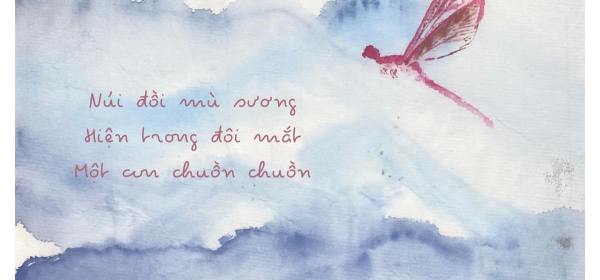 Núi đồi mù sương
Hiện trong đôi mắt
Một con chuồn chuồn